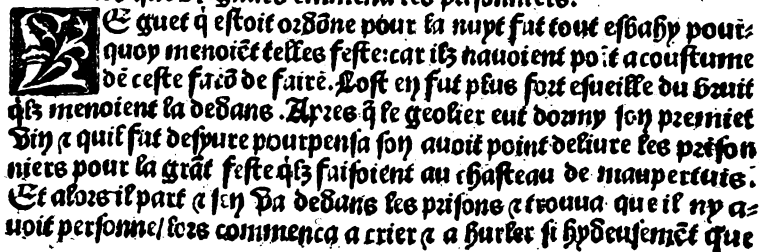 LE guet q̃ estoit ordõne pour la nuyt fut tout esbahy pour-
quoy menoiẽt telles feste:car ilz nauoient poĩt acoustume
de ceste facõ de faire. Lost en fut plus fort esueille du bruit
qlz menoient la dedans. Apres q̃ le geolier eut dormy son premier
vin ⁊ quil fut despure pourpensa son auoit point deliure les prison
niers pour la grãt feste qlz faisoient au chasteau de maupertuis.
Et alors il part ⁊ sen va dedans les prisons ⁊ trouua que il ny a-
uoit personne/lors commenca a crier ⁊ a hurler si hydeusemẽt que